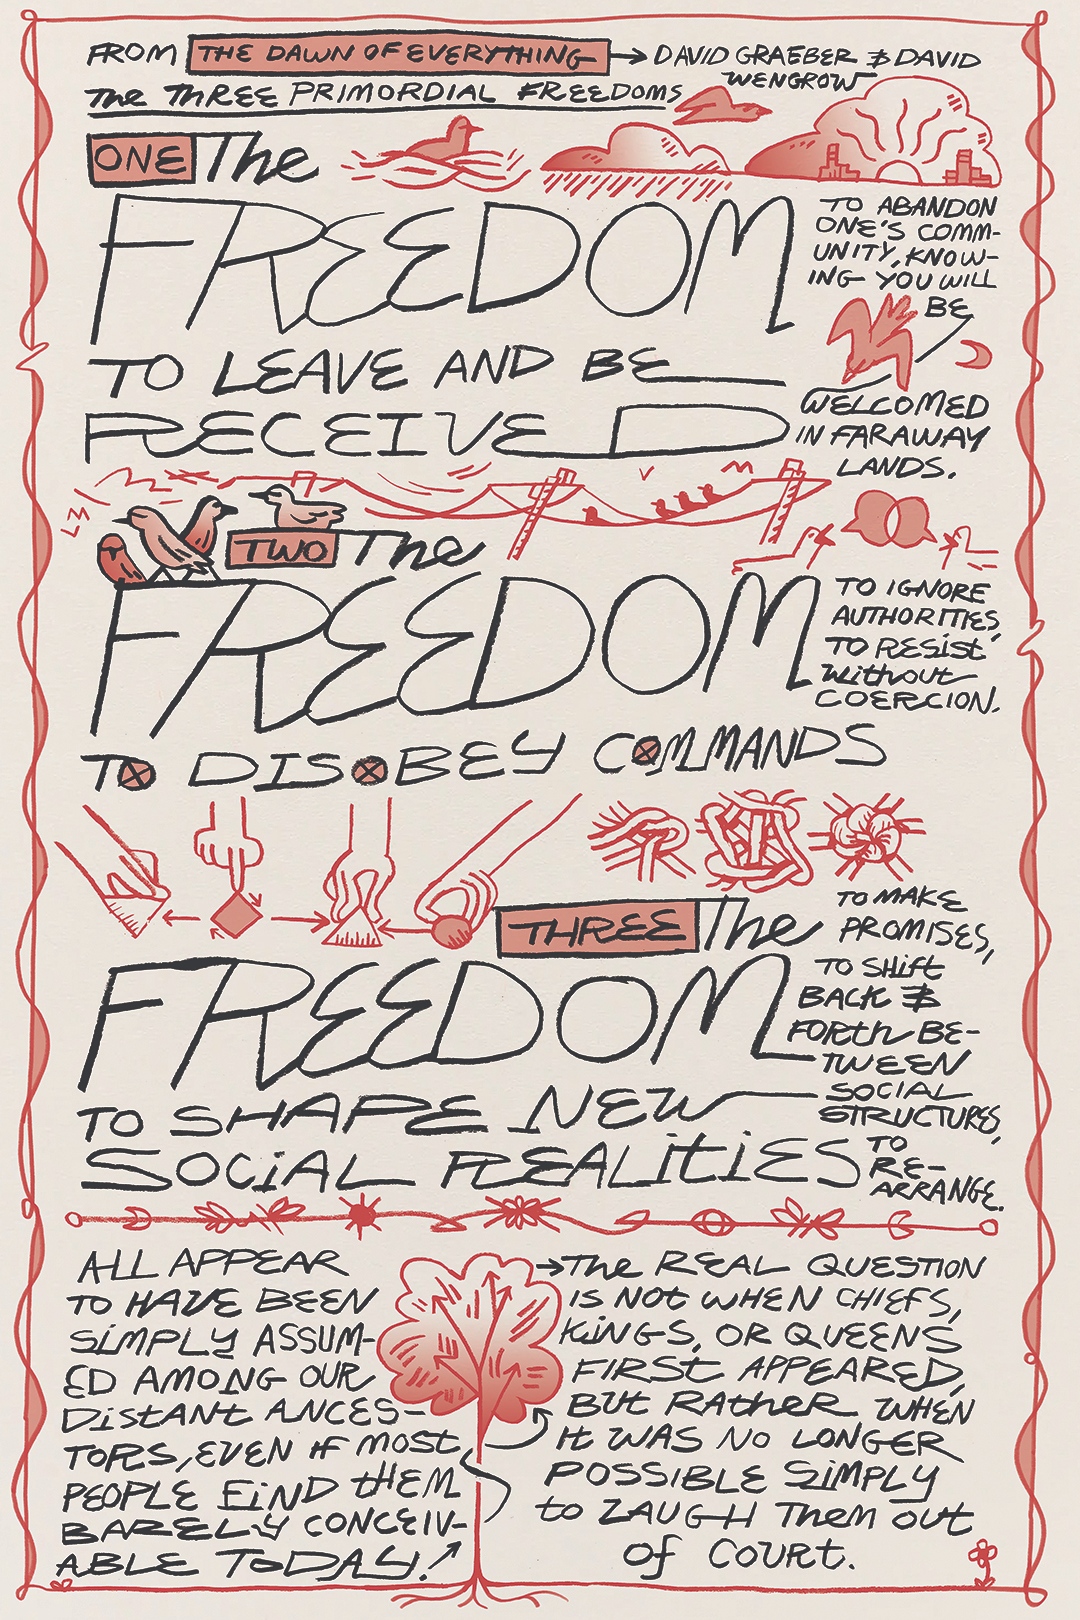 FROM THE DAWN OF EVERYTHING → DAVID GRAEBER & DAVID
WENGROW
The THREE PRIMORDIAL FREEDOMS
ONE The
FREEDOM
TO LEAVE AND BE
RECEIVED
TO ABANDON
ONE'S COMM-
UNITY, KNOW-
ING YOU WILL
BE
WELCOMED
IN FARAWAY
LANDS.
TWO The
FREEDOM
TO DISOBEY COMMANDS
TO IGNORE
AUTHORITIES,
TO RESiSt
Without
COERCION.
THREE The
FREEDOM
TO SHAPE NEW
SOCiAL REALitiES
TO MAKE
PROMISES,
TO SHift
BACK &
FORth BE-
TWEEN
SOCIAL
STRUCTURES,
TO
RE-
ARRANGE.
ALL APPEAR
TO HAVE BEEN
SiMPLY ASSUM-
ED AMONG OUR
DiStANt ANCES-
TORS, EVEN iF MOST
PEOPLE FiND tHEM
BARELY CONCEIV-
ABLE TODAY! ↗
→ The REAL QUESTION
IS NOt WHEN CHIEFS,
KiNGS, OR QUEENS
FIRSt APPEARED,
BUt RAtHER WHEN
It WAS NO LONGER
POSSIBLE SiMPLY
to LAUGH Them out
of COURt.